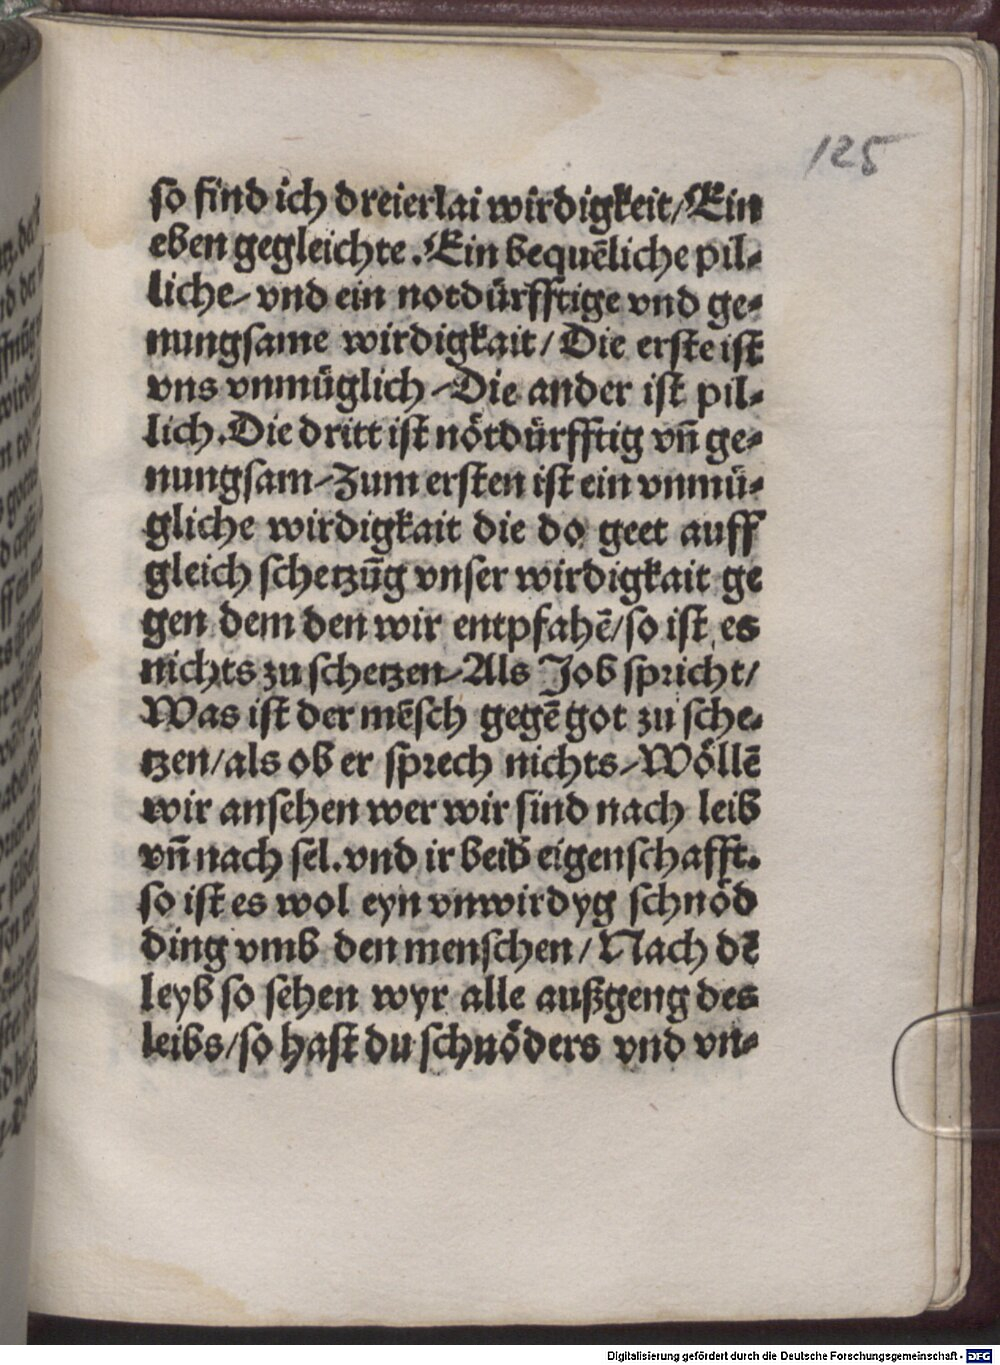 125
so find ich dreierlai wirdigkeit/Ein
eben gegleichte. Ein bequēliche pil⸗
liche⸗ vnd ein notdürfftige vnd ge⸗
nungsame wirdigkait/ Die erste ist
vns vnmüglich⸗Die ander ist pil⸗
lich. Die dritt ist nötdürfftig vn̄ ge⸗
nungsam⸗Zum ersten ist ein vnmü⸗
gliche wirdigkait die do geet auff
gleich schetzūg vnser wirdigkait ge
gen dem den wir entpfahē/so ist es
nichts zu schetzen⸗Als Job spricht/
Was ist der mēsch gegē got zu sche⸗
tzen/als ob er sprech nichts⸗Wöllē
wir ansehen wer wir sind nach leib
vn̄ nach sel. vnd ir beid eigenschafft.
so ist es wol eyn vnwirdyg schnöd
ding vmb den menschen/ Nach dē
leyb so sehen wyr alle außgeng des
leibs/so hast du schnöders vnd vn⸗
Digitalisierung gefördert durch die Deutsche Forschungsgemeinschaft - DFG